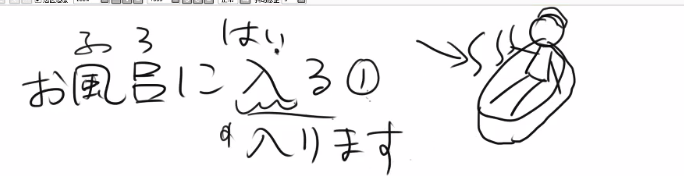 ふろ はい
お風呂に入る①
入ります